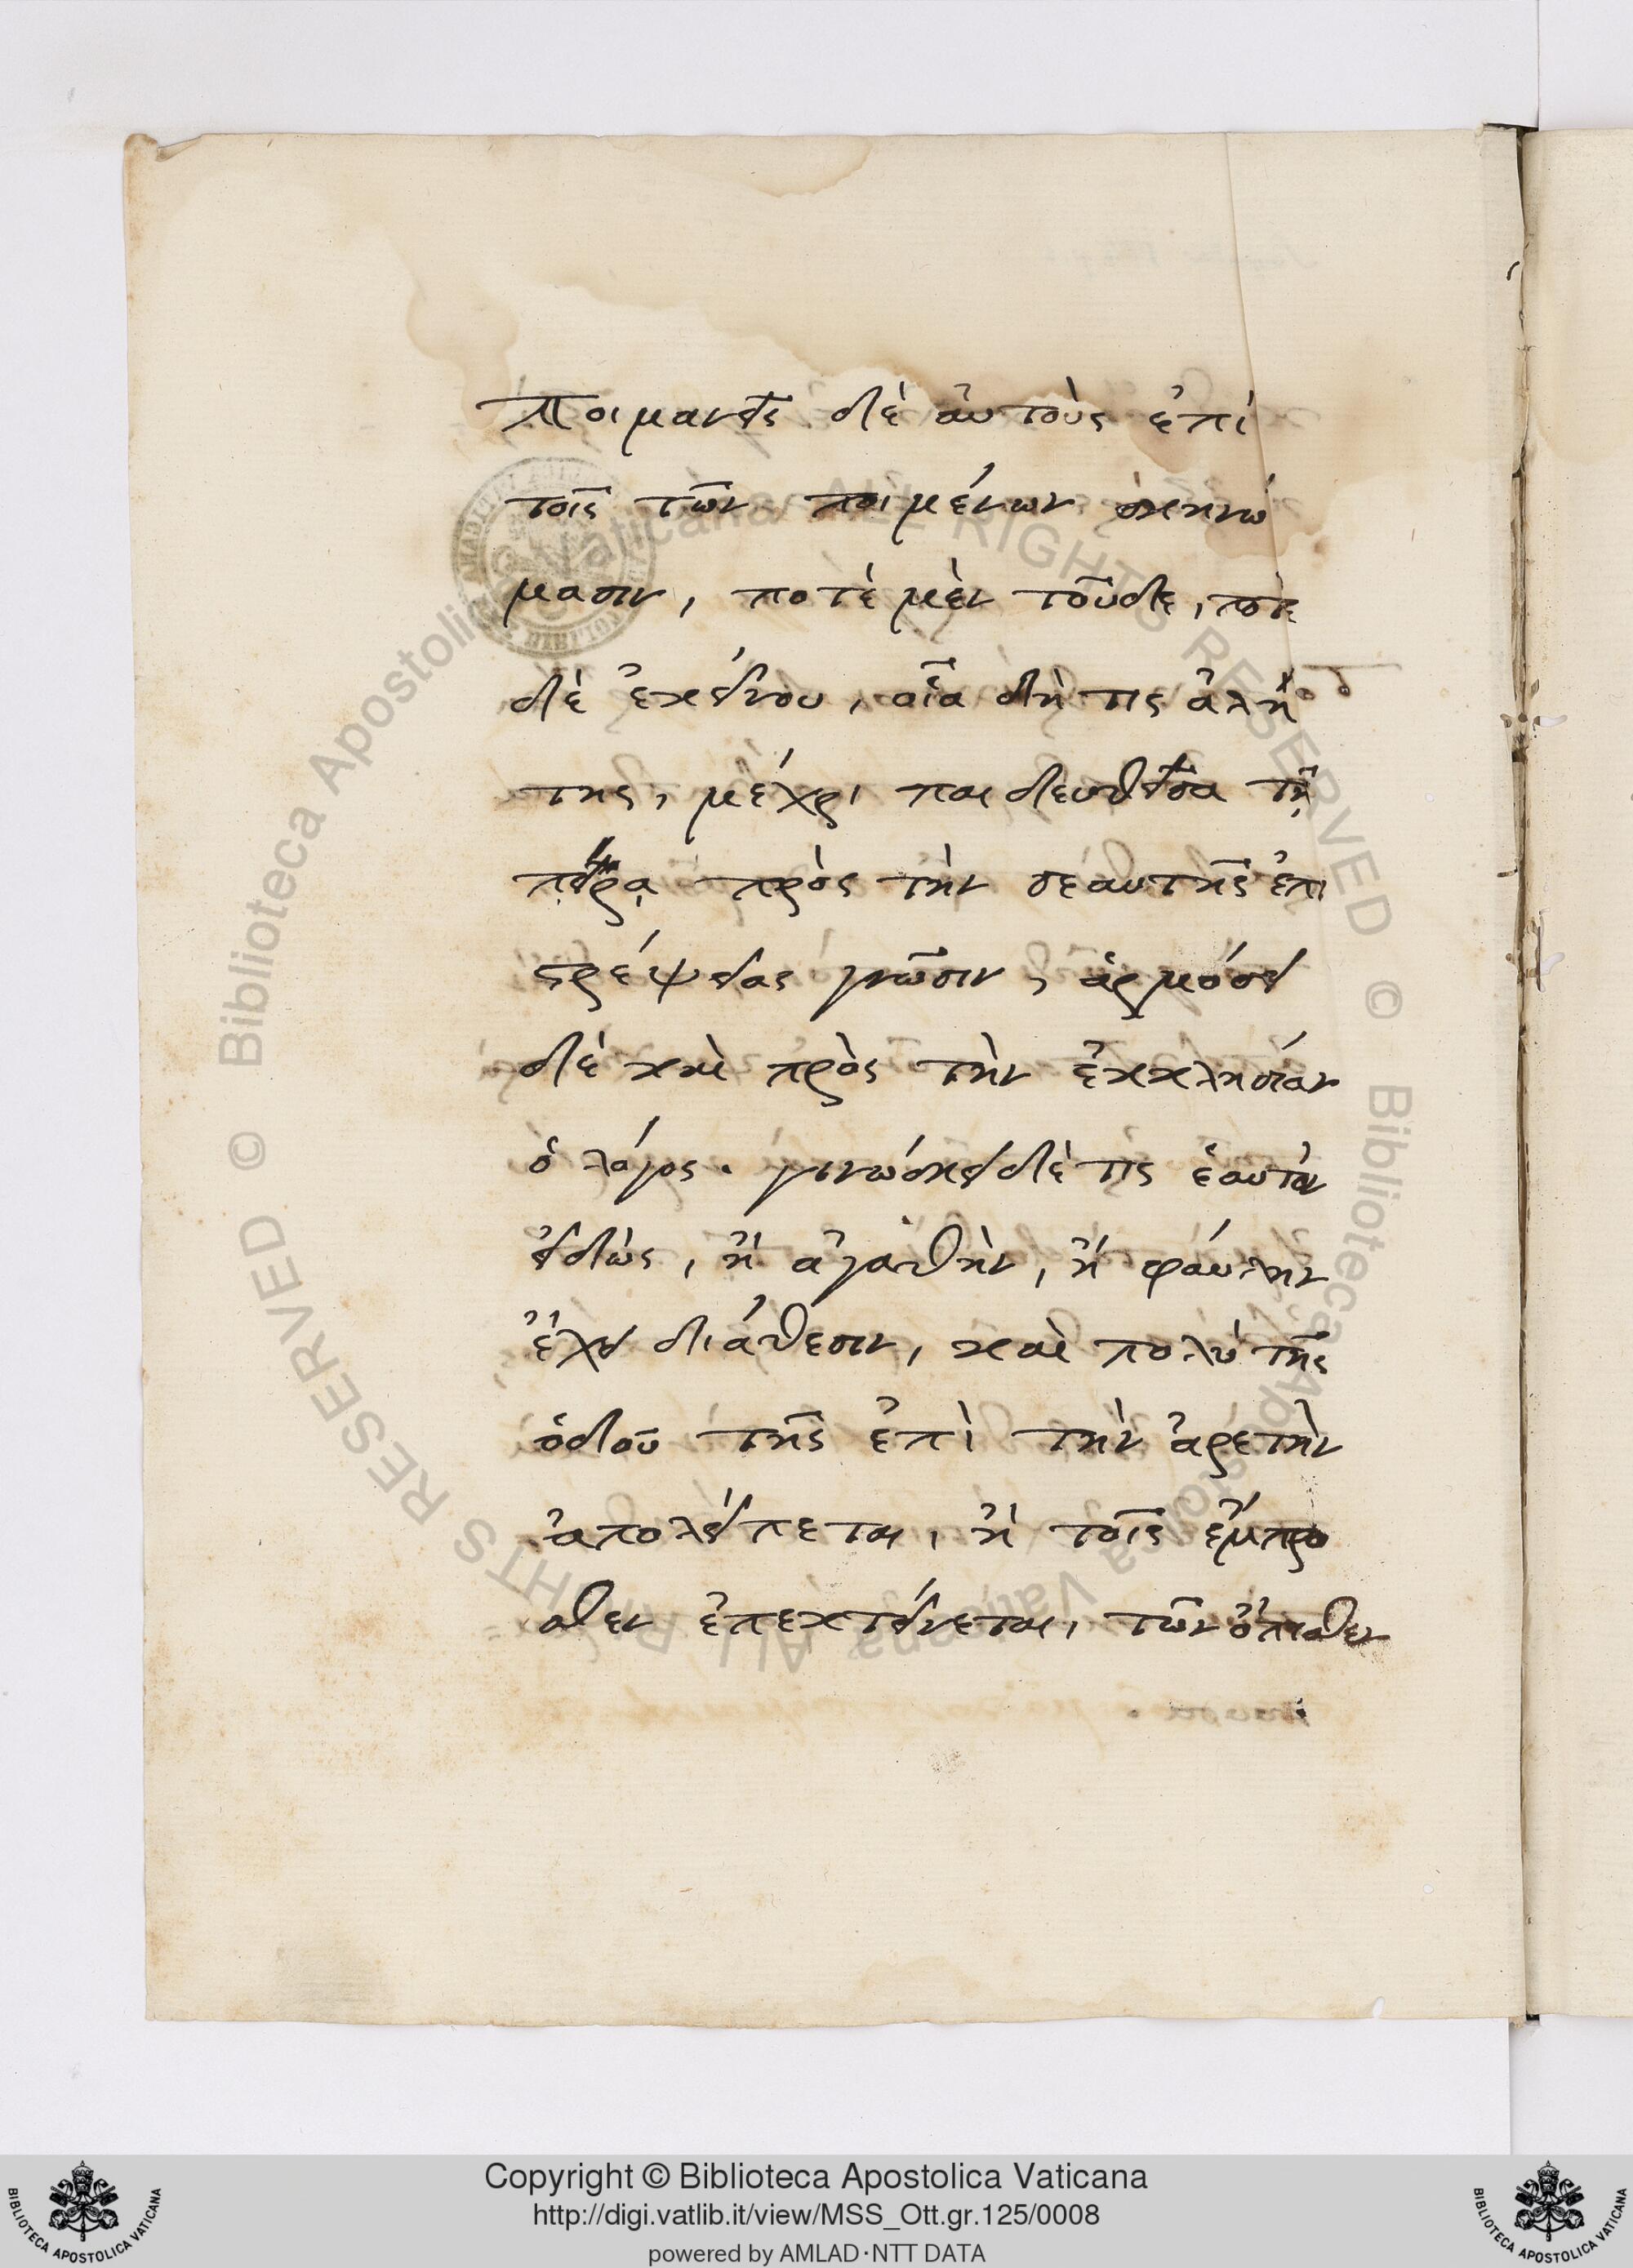 ποιμανεῖς δὲ αὐτοὺς ἐπὶ
τοῖς τῶν ποιμένων σκηνώ
μασιν, ποτὲ μὲν τοῦδε, ποτὲ
δὲ ἐκείνου, οἷα δή τις ἀλή
της, μέχρι παιδευθεῖσα τῇ
πείρᾳ πρὸς τὴν σεαυτῆς ἐπι
στρέψειας γνῶσιν, ἁρμόσει
δὲ καὶ πρὸς τὴν ἐκκλησίαν
ὁ λόγος. γινώσκει δέ τις ἑαυτὸν
εἰδὼς, ἢ ἀγαθὴν, ἢ φαύλην
ἔχει διάθεσιν, καὶ πολὺ τῆς
ὁδοῦ τῆς ἐπὶ τὴν ἀρετὴν
ἀπολείπεται, ἢ τοῖς ἔμπρο
σθεν ἐπεκτείνεται, τῶν ὄπισθεν
© Biblioteca Apostolica Vaticana ALL RIGHTS RESERVED
© Biblioteca Apostolica Vaticana ALL RIGHTS RESERVED
Copyright © Biblioteca Apostolica Vaticana
http://digi.vatlib.it/view/MSS_Ott.gr.125/0008
powered by AMLAD·NTT DATA
BIBLIOTECA APOSTOLICA VATICANA
BIBLIOTECA APOSTOLICA VATICANA